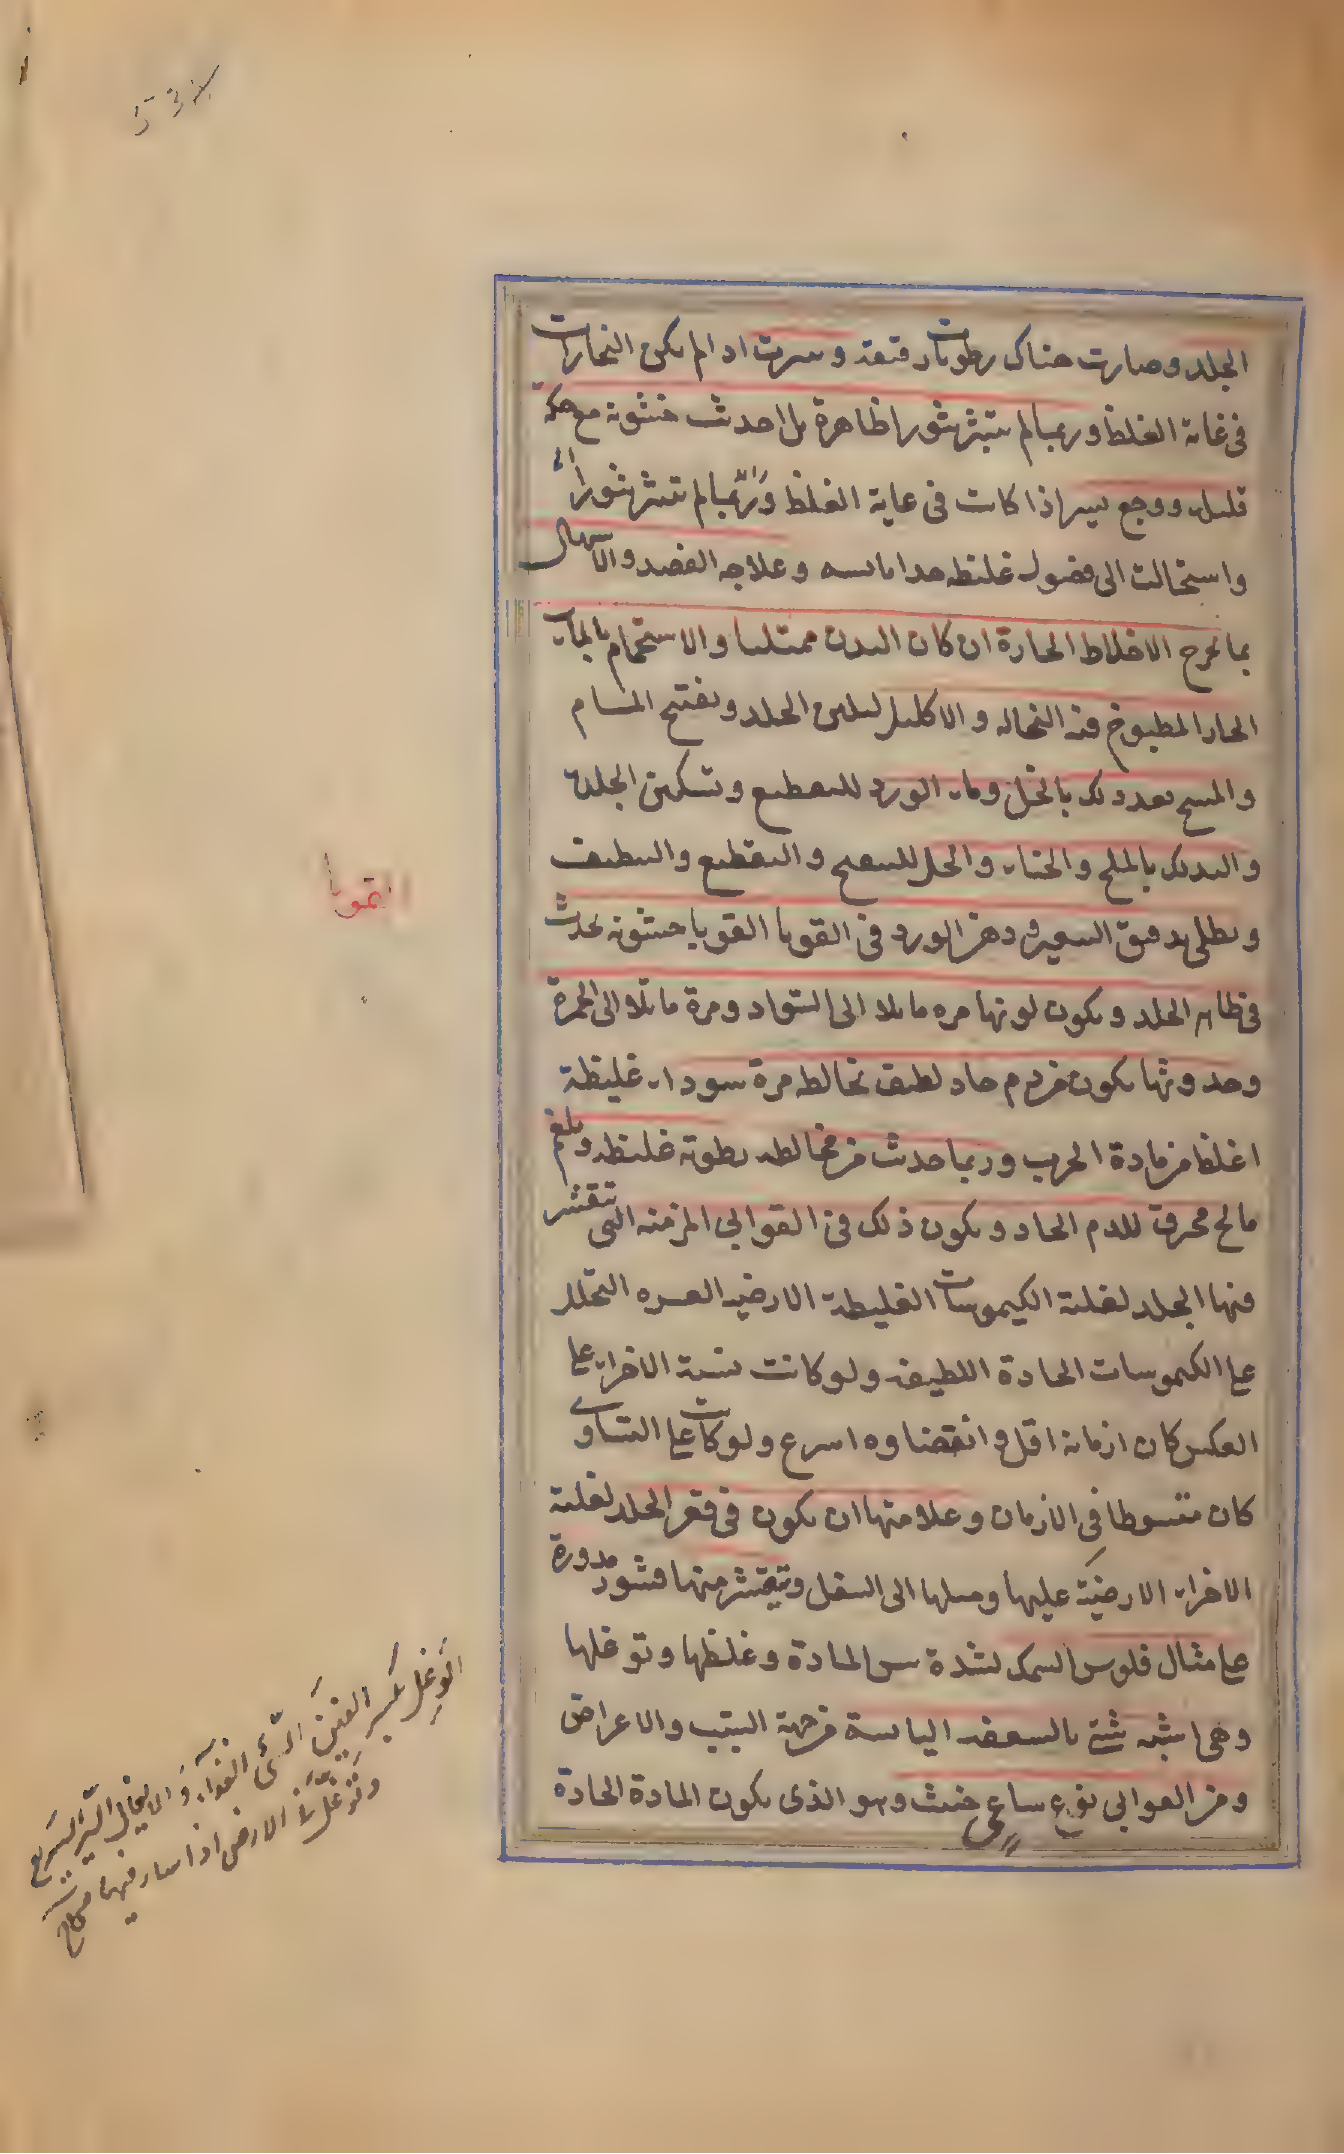 الجلد وصارت هناك رطوبات رقيقة وسرت اذا لم يكن البخارات
فى غاية الغلظ وربما لم يتبثر بثورا ظاهرة بل احدثت خشونة مع حكة
قليلة ووجع يسير اذا كانت فى غاية الغلظ وربما لم تتبثر بثورا
واستحالت الى فضول غليظه جدا يابسه وعلاجه الفصد والاسهال
بما يخرج الاخلاط الحارة ان كان البدن ممتليا والاستحمام بالماء
الحار المطبوخ فيه النخاله والاكليل ليلين الجلد ويفتح المسام
والمسح بعد ذلك بالخل وماء الورد للتقطيع وتسكين الجلدة
والتدلك بالملح والحناء والخل للتفتيح والتقطيع والتنظيف
ويطلى بدقيق الشعير ودهن الورد فى القوبا القوبا خشونه تحدث
فى ظاهر الجلد ويكون لونها مره مايلا الى السواد ومرة مايلا الى الحمرة
وحدوثها يكون من دم حاد لطيف تخالطه مرة سوداء غليظة
اغلظ من مادة الجرب وربما حدثت من مخالطه رطوبة غليظه وبلغم
مالح محرق للدم الحاد ويكون ذلك فى القوابى المزمنه التى تتقشر
فيها الجلد لغلبة الكيموسات الغليظة الارضيه العسره التحلل
على الكيموسات الحادة اللطيفه ولو كانت نسبة الاخراء على
العكس كان ازمانه اقل وانقضاوه اسرع ولو كانت على التساوى
كان متوسطا فى الازمان وعلامتها ان يكون فى قعر الجلد لغلبة
الاجزاء الارضية عليها وميلها الى السفل ويتقشر منها قشور مدورة
على مثال فلوس السمك لشدة يبس المادة وغلظها وتوغلها
وهى اشبه شئ بالسعفه اليابسة من جهة السبب والاعراض
ومن القوابى نوع ساعى خبيث وهو الذى يكون المادة الحادة
القوبا
الوغل بكسر الغين السئ الغذاء والايغال السير السريع
وتوغل فى الارض اذا سار فيها صحاح